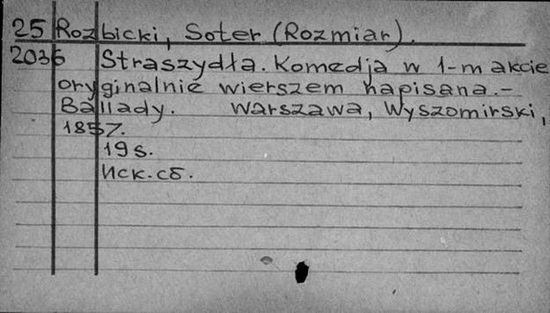 25 Rozbicki, Soter (Rozmiar).
2036 Straszydła. Komedja w 1-m akcie
oryginalnie wierszem napisana.-
Ballady. Warszawa, Wyszomirski,
1857.
19 s.
Иск.сб.